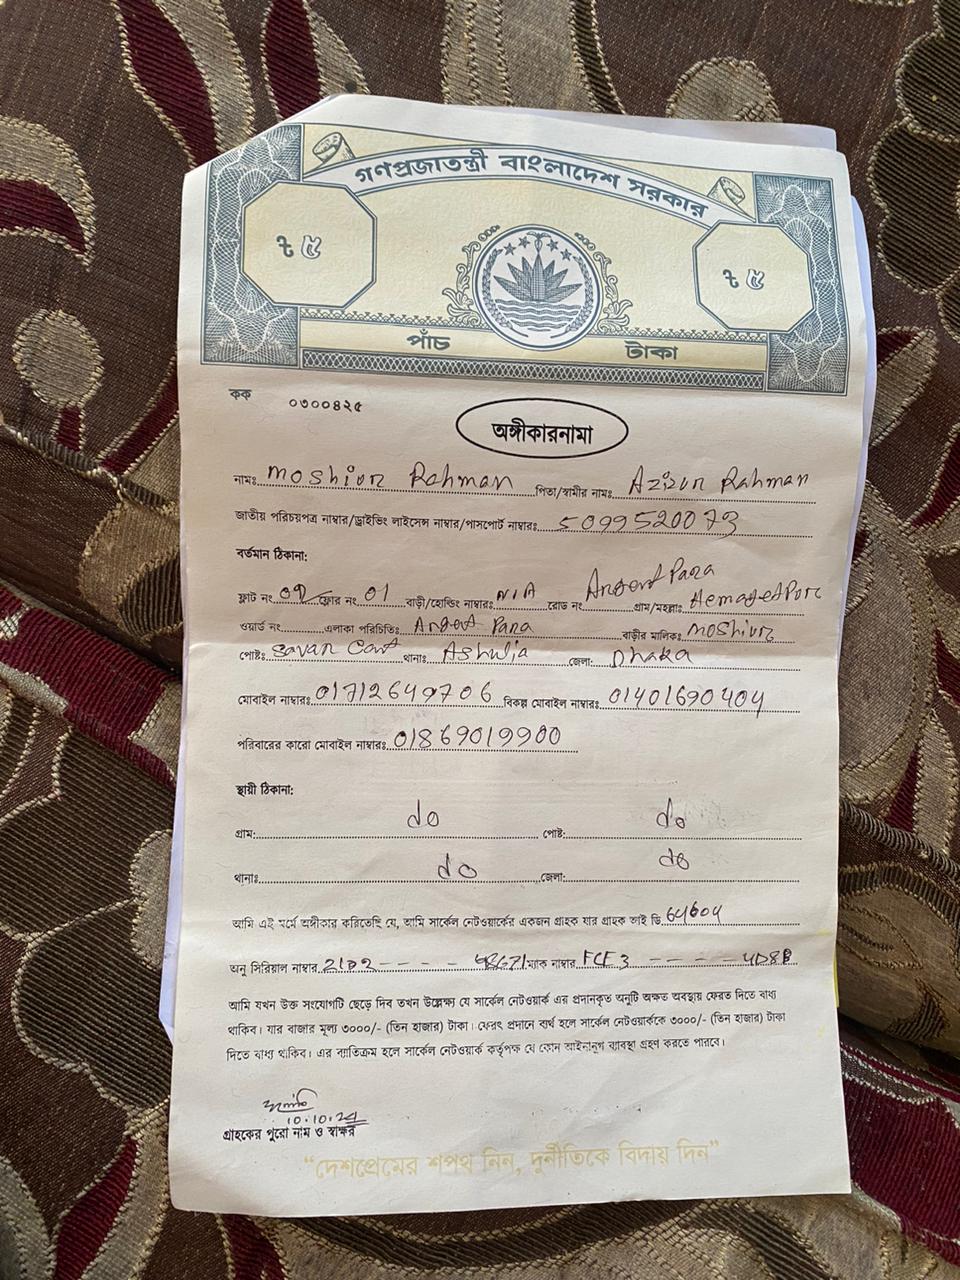 গণপ্রজাতন্ত্রী বাংলাদেশ সরকার
৳ ৫
৳ ৫
পাঁচ টাকা
কক ০৩০০৪২৫
অঙ্গীকারনামা
নামঃ Moshiur Rahman পিতা/স্বামীর নামঃ Azizur Rahman
জাতীয় পরিচয়পত্র নাম্বার/ড্রাইভিং লাইসেন্স নাম্বার/পাসপোর্ট নাম্বারঃ 5099520073
বর্তমান ঠিকানা:
ফ্লাট নং ফ্লোর নং 01 বাড়ী/হোল্ডিং নাম্বারঃ N/A রোড নং Para গ্রাম/মহল্লাঃ
ওয়ার্ড নং এলাকা পরিচিতিঃ Para বাড়ীর মালিকঃ Moshiur
পোষ্টঃ Savar Cant থানাঃ Ashulia জেলা: Dhaka
মোবাইল নাম্বারঃ 01712649706 বিকল্প মোবাইল নাম্বারঃ 01401690404
পরিবারের কারো মোবাইল নাম্বারঃ 01869019900
স্থায়ী ঠিকানা:
গ্রাম: do পোষ্ট: do
থানাঃ do জেলা: do
আমি এই মর্মে অঙ্গীকার করিতেছি যে, আমি সার্কেল নেটওয়ার্কের একজন গ্রাহক যার গ্রাহক আই ডি 64604
অনু সিরিয়াল নাম্বার 21D2 - - - - ম্যাক নাম্বার FCF3 - - - - 4D8B
আমি যখন উক্ত সংযোগটি ছেড়ে দিব তখন উল্লেক্ষ্য যে সার্কেল নেটওয়ার্ক এর প্রদানকৃত অনুটি অক্ষত অবস্থায় ফেরত দিতে বাধ্য
থাকিব। যার বাজার মূল্য ৩০০০/- (তিন হাজার) টাকা। ফেরৎ প্রদানে ব্যর্থ হলে সার্কেল নেটওয়ার্ককে ৩০০০/- (তিন হাজার) টাকা
দিতে বাধ্য থাকিব। এর ব্যতিক্রম হলে সার্কেল নেটওয়ার্ক কর্তৃপক্ষ যে কোন আইনানুগ ব্যবস্থা গ্রহণ করতে পারবে।
10.10.24
গ্রাহকের পুরো নাম ও স্বাক্ষর
“দেশপ্রেমের শপথ নিন, দুর্নীতিকে বিদায় দিন”